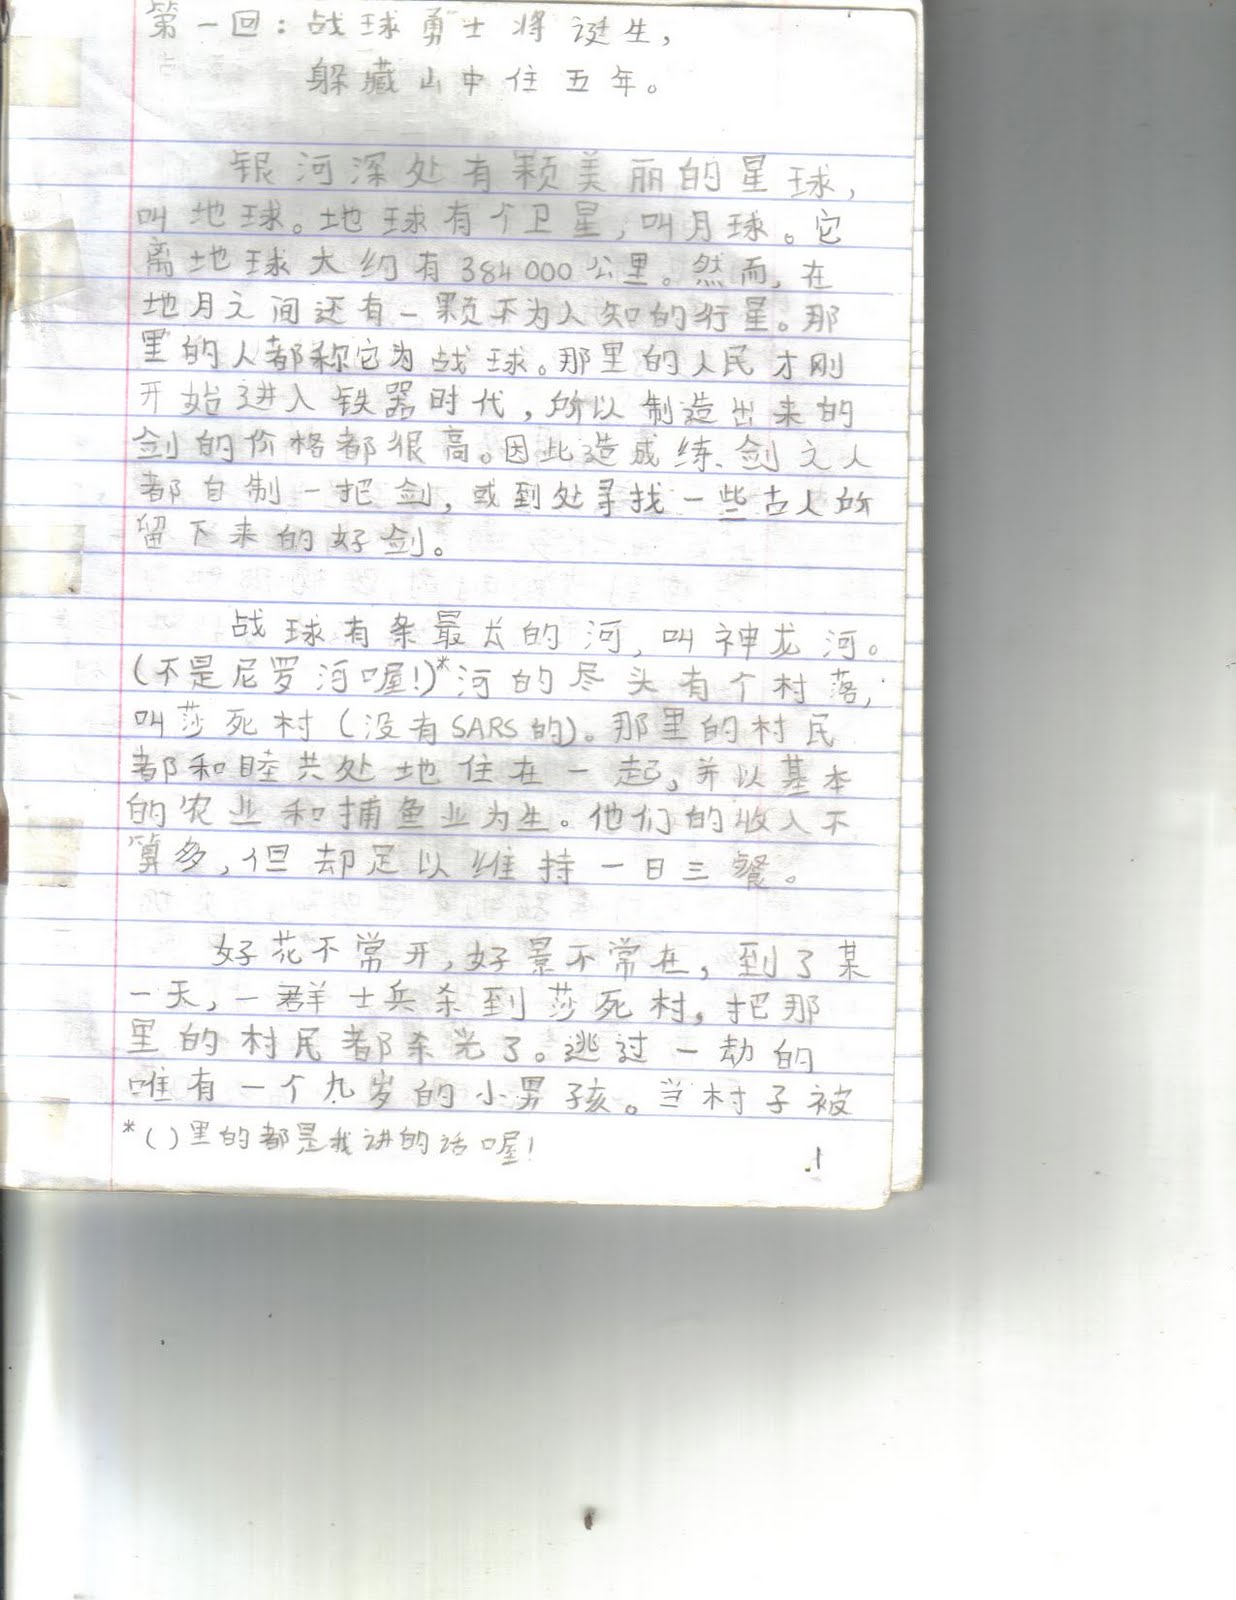 第一回：战球勇士将诞生，
躲藏山中住五年。
银河深处有颗美丽的星球，
叫地球。地球有个卫星，叫月球。它
离地球大约有384000公里。然而，在
地月之间还有一颗不为人知的行星。那
里的人都称它为战球。那里的人民才刚
开始进入铁器时代，所以制造出来的
剑的价格都很高。因此造成练剑之人
都自制一把剑，或到处寻找一些古人所
留下来的好剑。
战球有条最大的河，叫神龙河。
(不是尼罗河喔！)*河的尽头有个村落，
叫莎死村（没有SARS的)。那里的村民
都和睦共处地住在一起，并以基本
的农业和捕鱼业为生。他们的收入不
算多，但却足以维持一日三餐。
好花不常开，好景不常在，到了某
一天，一群士兵杀到莎死村，把那
里的村民都杀光了。逃过一劫的
唯有一个九岁的小男孩。当村子被
*()里的都是我讲的话喔！
1